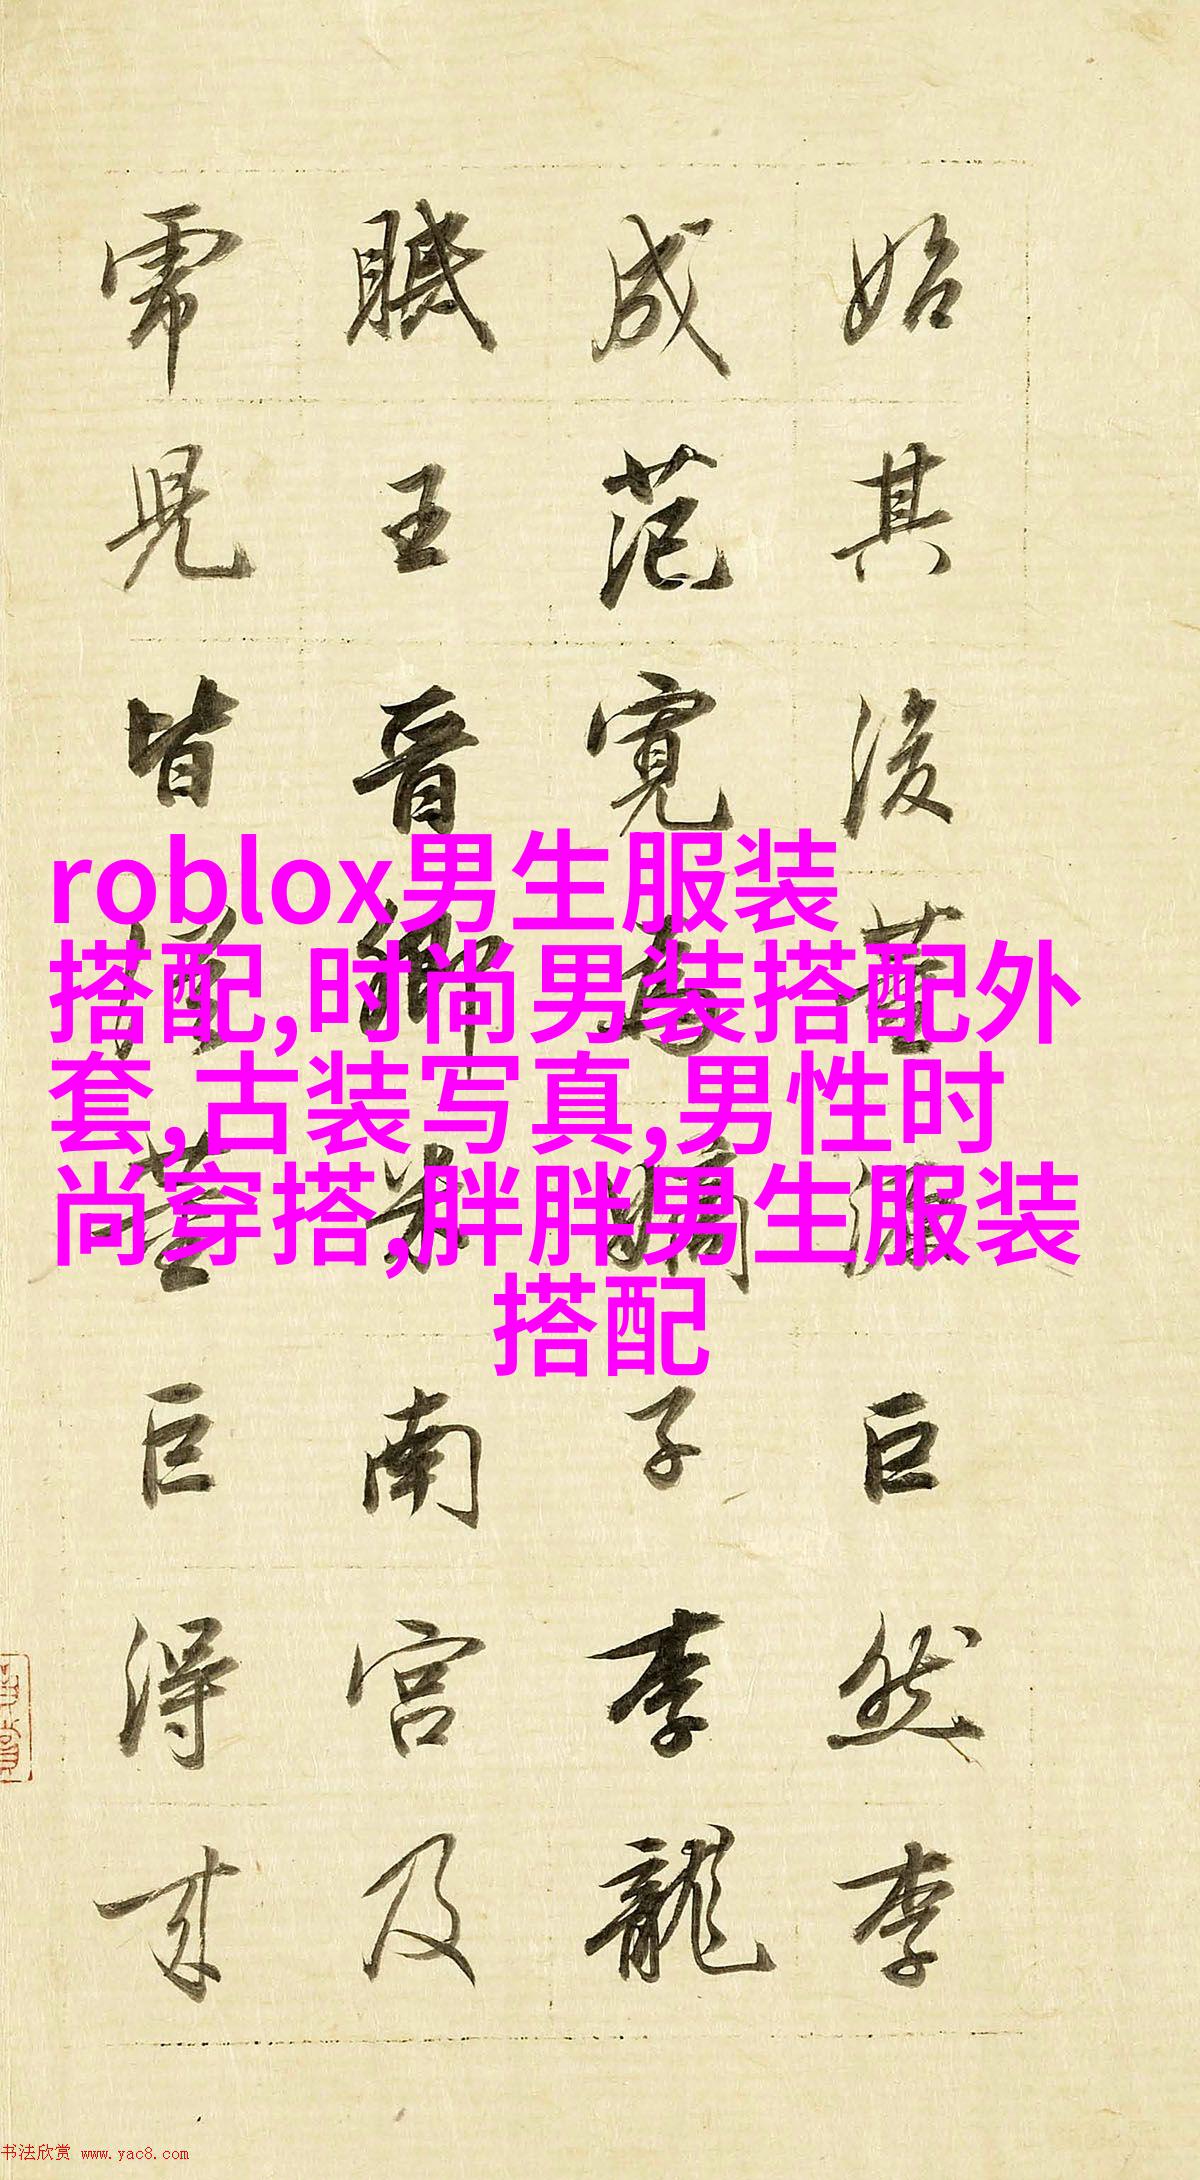 始其後董源巨然李
成范寬為嫡子李龍
眠王晉卿米南宮及
虎兒皆從董巨得来
roblox男生服装
搭配,时尚男装搭配外
套,古装写真,男性时
尚穿搭,胖胖男生服装
搭配
书法欣赏 www.yac8.com